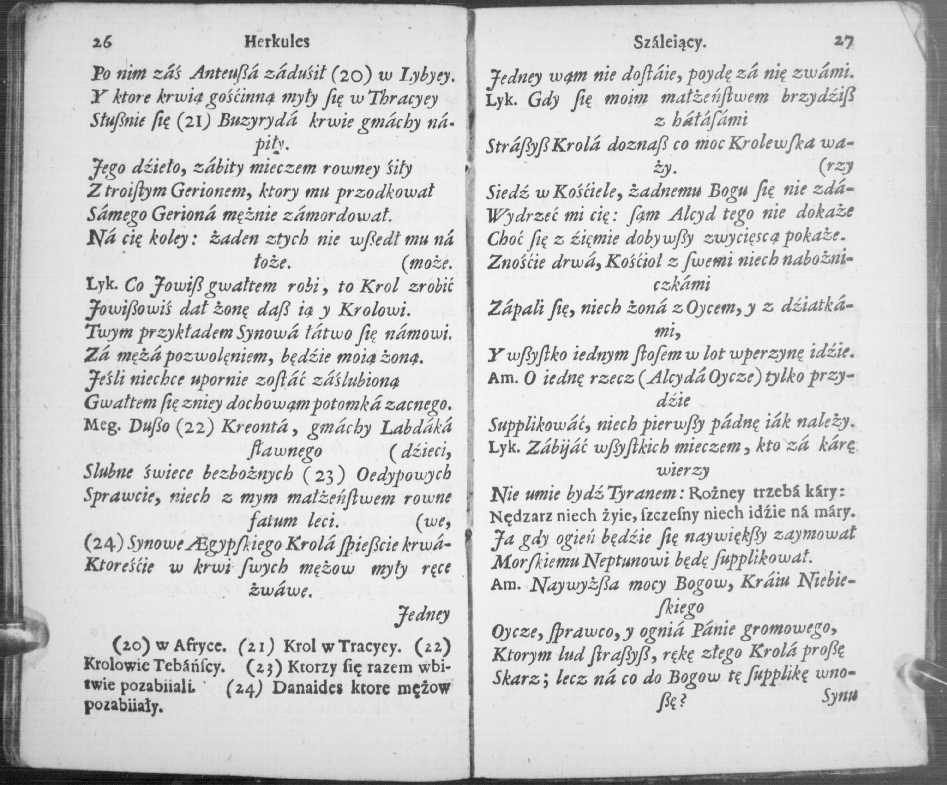 26 Herkules
Po nim záś Anteuſzá záduśił (20) w Lybyey.
Y ktore krwią gośćinną myły ſię w Thracyey
Słuſznie ſię (21) Buzyrydá krwie gmáchy ná-
piły.
Jego dźieło, zábity mieczem rowney śiły
Z troiſtym Gerionem, ktory mu przodkował
Sámego Gerioná mężnie zámordował.
Ná cię koley: żaden ztych nie wſzedł mu ná
łoże. (może.
Lyk. Co Jowiſz gwałtem robi, to Krol zrobić
Jowiſzowiś dał żonę daſz ią y Krolowi.
Twym przykładem Synowá łátwo ſię námowi.
Zá mężá pozwolęniem, będźie moią żoną.
Jeśli niechce upornie zoſtáć záślubioną
Gwałtem ſię zniey dochowąm potomká zacnego.
Meg. Duſzo (22) Kreontá, gmáchy Labdáká
ſławnego (dźieci,
Slubne świece bezbożnych (23) Oedypowych
Sprawcie, niech z mym małżeńſtwem rowne
fatum leci. (we,
(24) Synowe Ægypſkiego Krolá ſpieſzcie krwá-
Ktoreśćie w krwi ſwych mężow myły ręce
żwáwe.
Jedney
(20) w Afryce. (21) Krol w Tracycy. (22)
Krolowie Tebáńſcy. (23) Ktorzy ſię razem wbi-
twie pozabiiali. (24) Danaides ktore mężow
pozabiiały.
Száleiący. 27
Jedney wąm nie doſtáie, poydę zá nię zwámi.
Lyk. Gdy ſię moim małżeńſtwem brzydźiſz
z háłáſámi
Stráſzyſz Krolá doznaſz co moc Krolewſka wa-
ży. (rzy
Siedź w Kośćiele, żadnemu Bogu ſię nie zdá-
Wydrzeć mi cię: ſąm Alcyd tego nie dokaże
Choć ſię z źięmie dobywſzy zwycięscą pokaże.
Znośćie drwá, Kośćioł z ſwemi niech nabożni-
czkámi
Zápali ſię, niech żoná z Oycem, y z dźiatká-
mi,
Y wſzyſtko iednym ſtoſem w lot wperzynę idźie.
Am. O iednę rzecz (Alcydá Oycze) tylko przy-
dźie
Supplikowáć, niech pierwſzy pádnę iák należy.
Lyk. Zábijáć wſzyſtkich mieczem, kto zá kárę
wierzy
Nie umie bydź Tyranem: Rożney trzebá káry:
Nędzarz niech żyie, ſzczeſny niech idźie ná máry.
Ja gdy ogień będźie ſię naywiękſzy zaymował
Morſkiemu Neptunowi będę ſupplikował.
Am. Naywyżſza mocy Bogow, Kráiu Niebie-
ſkiego
Oycze, ſprawco, y ogniá Pánie gromowego,
Ktorym lud ſtraſzyſz, rękę złego Krolá proſzę
Skarz; lecz ná co do Bogow tę ſupplikę wno-
ſzę? Synu